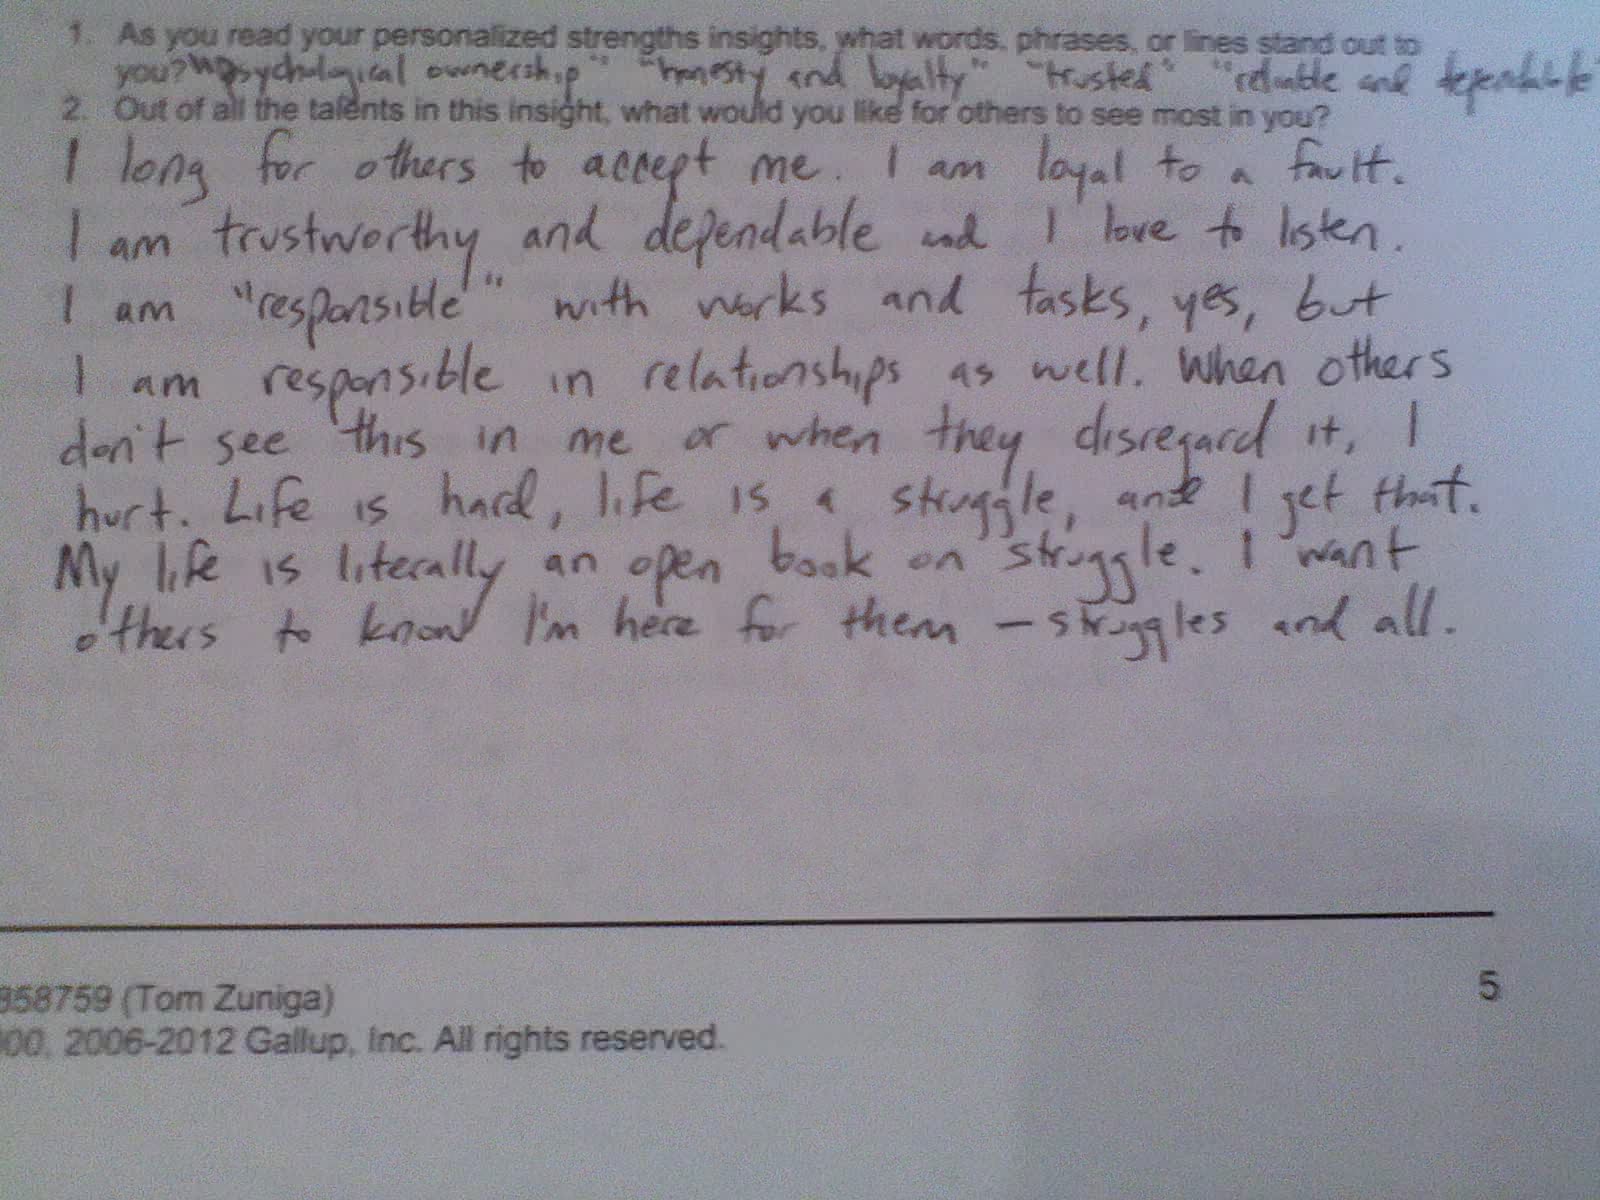 1. As you read your personalized strengths insights, what words, phrases, or lines stand out to
you? "psychological ownership" "honesty and loyalty" "trusted" "reliable and dependable"
2. Out of all the talents in this insight, what would you like for others to see most in you?
I long for others to accept me. I am loyal to a fault.
I am trustworthy and dependable and I love to listen.
I am "responsible" with works and tasks, yes, but
I am responsible in relationships as well. When others
don't see this in me or when they disregard it, I
hurt. Life is hard, life is a struggle, and I get that.
My life is literally an open book on struggle. I want
others to know I'm here for them – struggles and all.
858759 (Tom Zuniga)
5
00, 2006-2012 Gallup, Inc. All rights reserved.